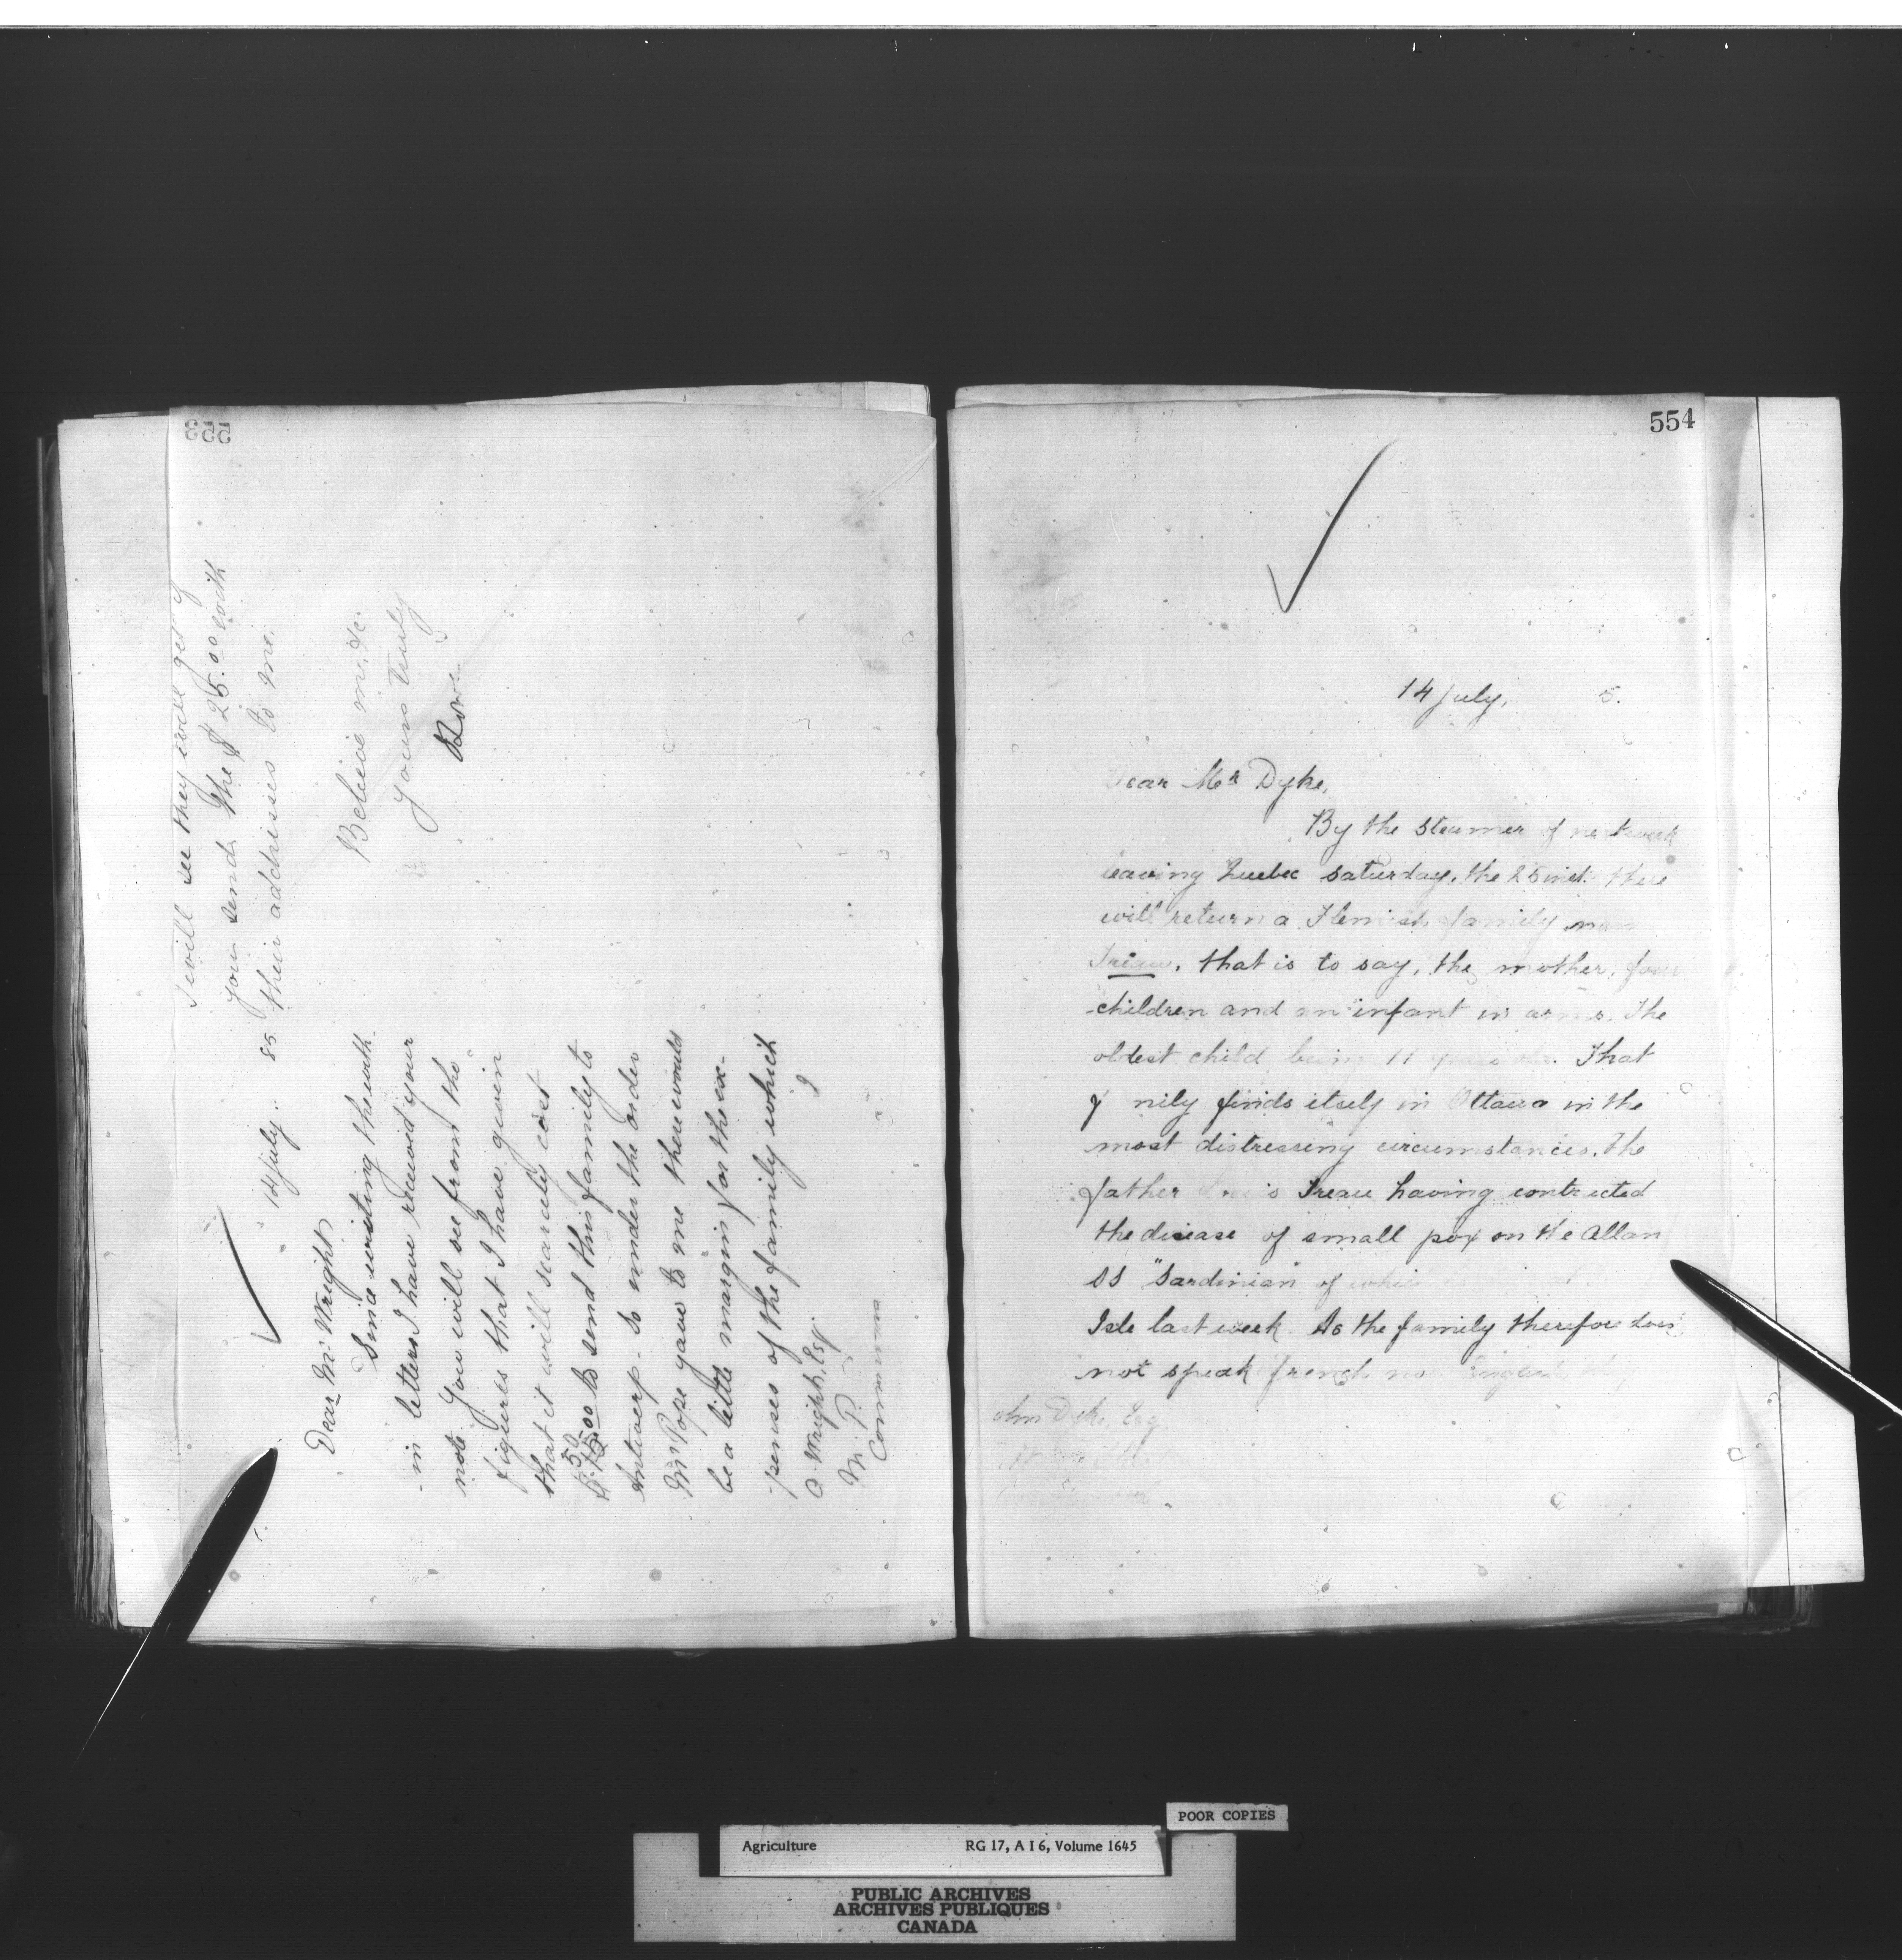 14 July. 85
Dear Mr Wright,
Since writing the with-
in letters I have received your
note. You will see from the
figures that I have given
that it will scarcely cost
$50
$75.00 to send this family to
Antwerp. So under the order
Mr Pope gave to me there would
be a little margin for the ex-
penses of the family which
I
A. Wright, Esq.
M. P.
Commons
I will see they will get if
you send the $25.00 with
their addresses to me.
Believe me, &c
yours truly
553
554
14 July, 5.
ear Mr Dyke,
By the steamer of next week
leaving Quebec Saturday, the 25 inst. there
will return a Flemish family
Treau, that is to say, the mother, four
children and an infant in arms. The
oldest child being 11 years old. That
nily finds itself in Ottawa in the
most distressing circumstances, the
father Treau having contracted
the disease of small pox on the Allan
SS "Sardinian" of
Isle last week. As the family therefore does
not speak french nor
ohn Dyke, Esq
POOR COPIES
Agriculture RG 17, A I 6, Volume 1645
PUBLIC ARCHIVES
ARCHIVES PUBLIQUES
CANADA